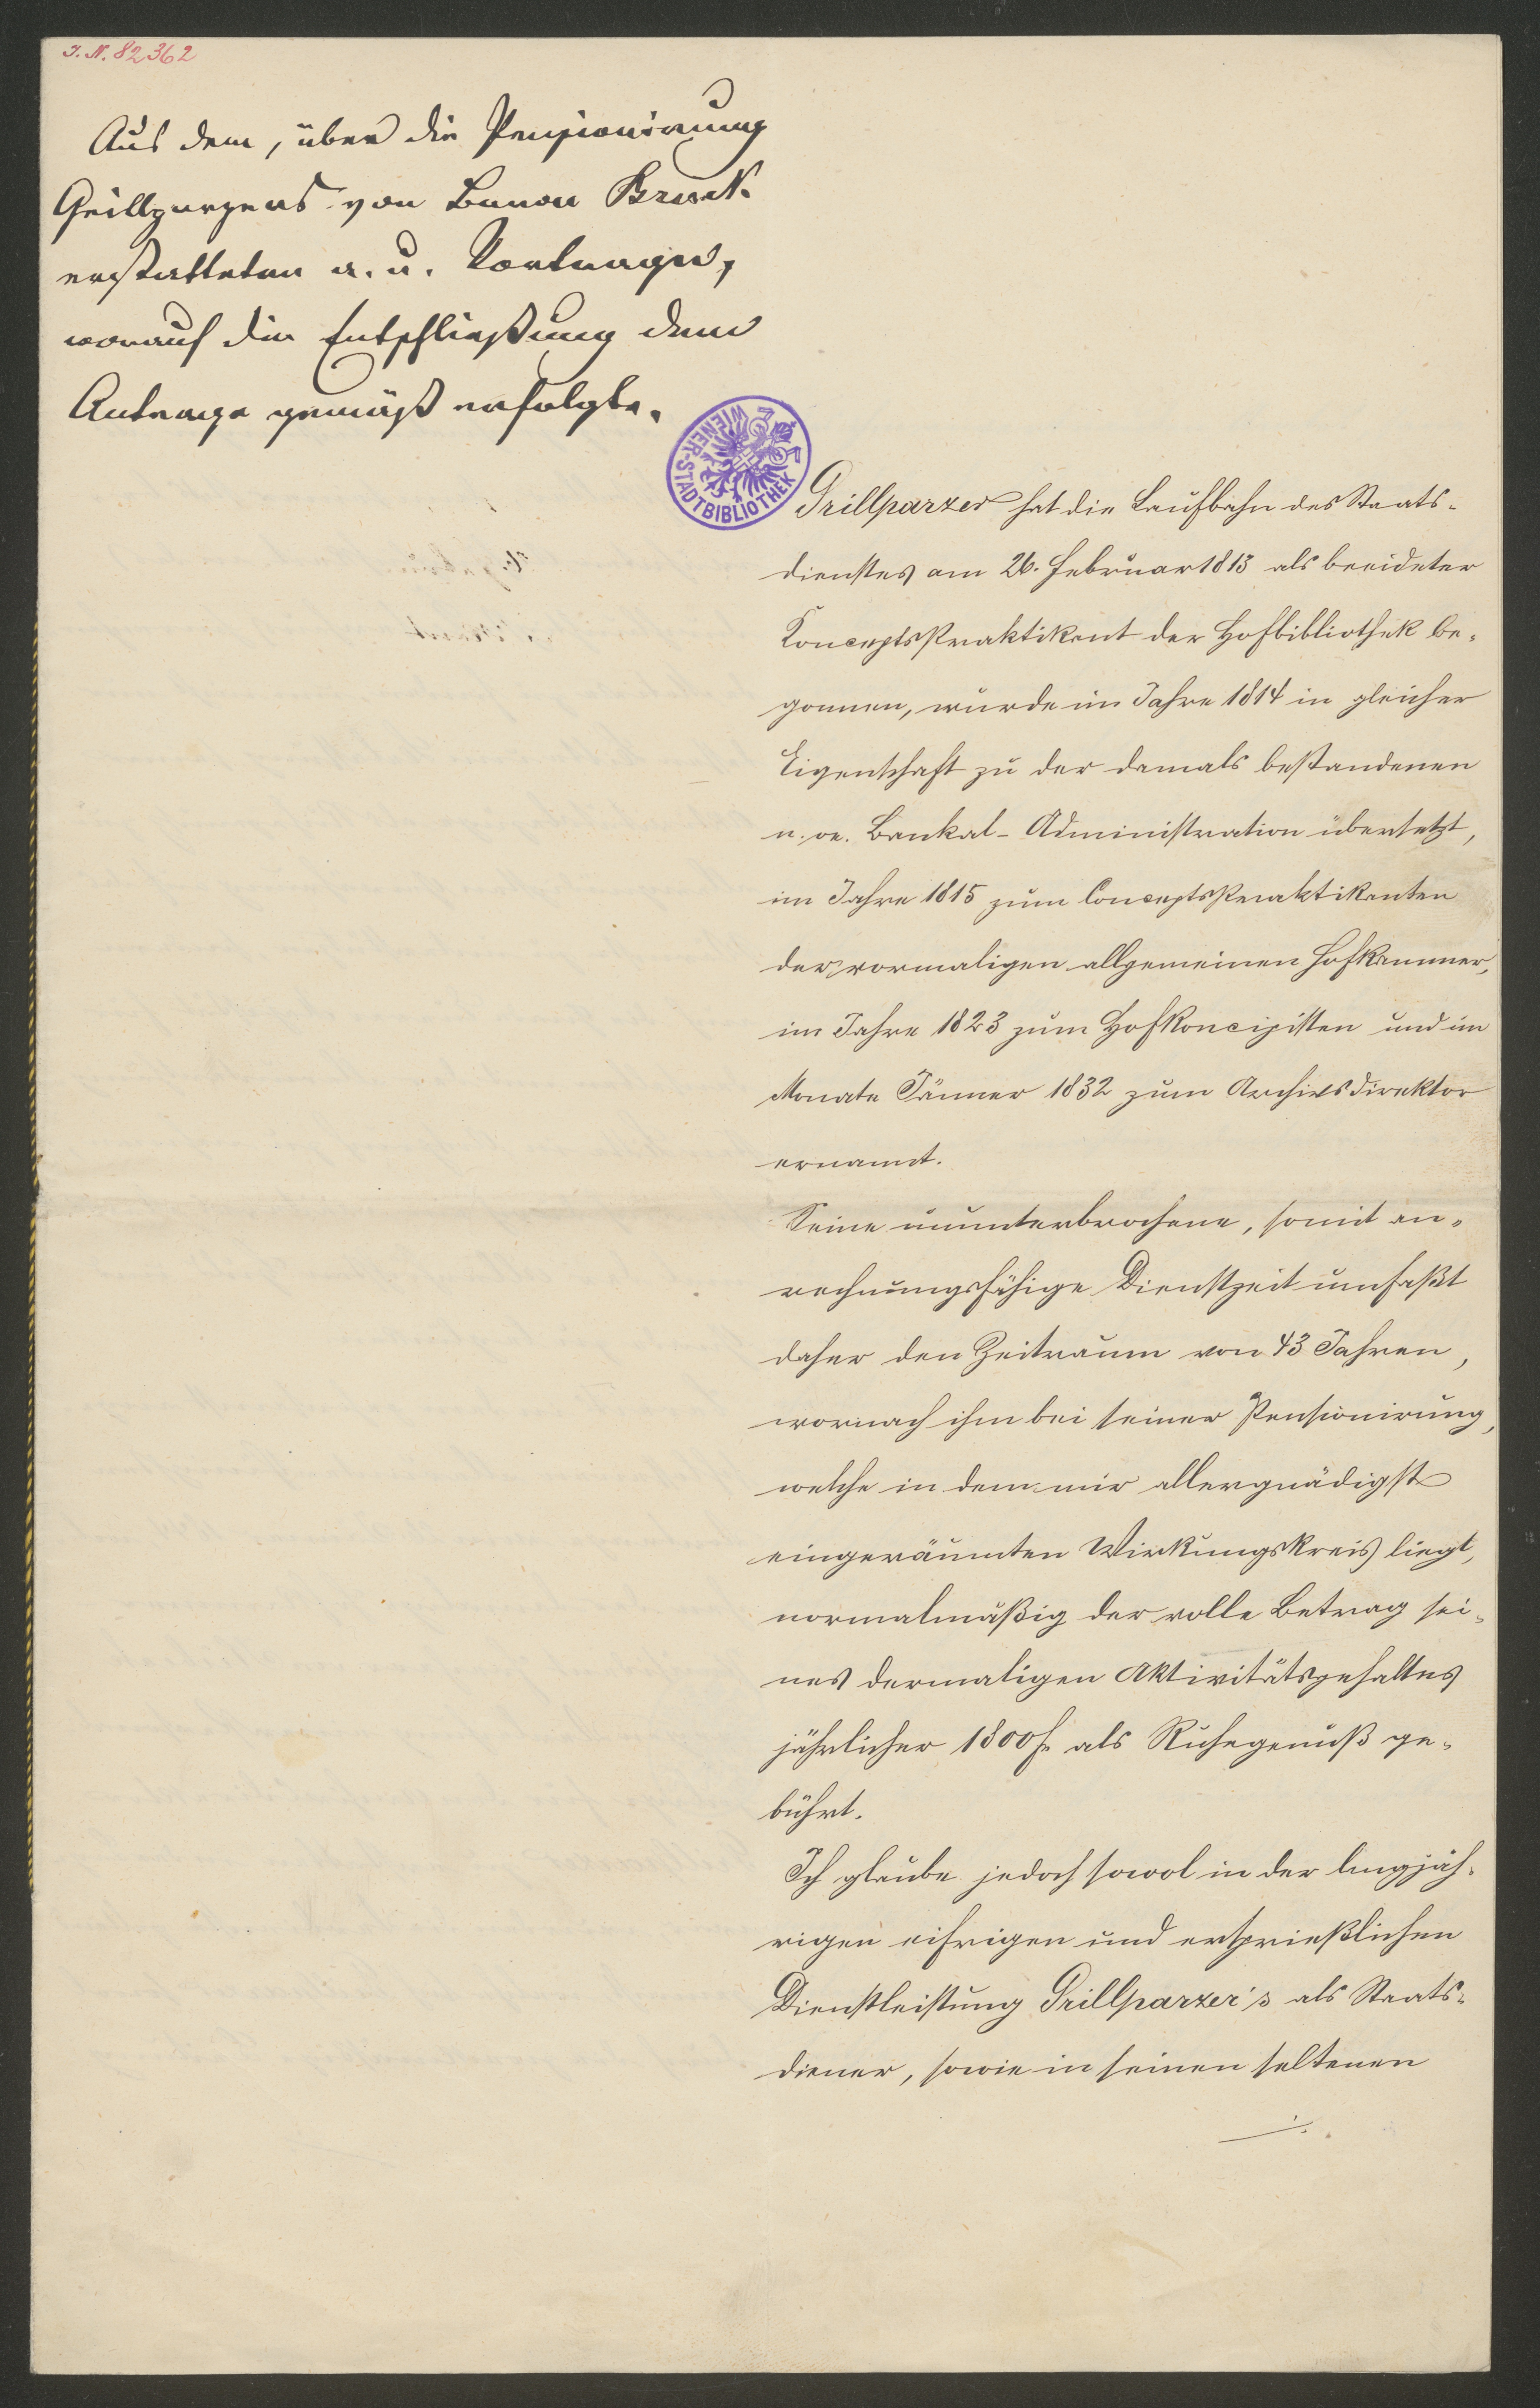 I. N. 82362
Aus dem, über die Pensionirung
Grillparzers von Baron Bruck
erstatteten a. u. Vortrage,
worauf die Entschließung dem
Antrage gemäß erfolgte.
WIENER-STADTBIBLIOTHEK
Grillparzer hat die Laufbahn des Staats-
dienstes am 26. Februar 1813 als beeideter
Konceptspraktikant der Hofbibliothek be-
gonnen, wurde im Jahre 1814 in gleicher
Eigenschaft zu der damals bestandenen
n. oe. Bankal-Administration übersetzt,
im Jahre 1815 zum Conceptspraktikanten
der vormaligen allgemeinen Hofkammer,
im Jahre 1823 zum Hofkoncipisten und im
Monate Jänner 1832 zum Archivsdirektor
ernannt.
Seine ununterbrochene, somit an-
rechnungsfähige Dienstzeit umfaßt
daher den Zeitraum von 43 Jahren,
wornach ihm bei seiner Pensionirung,
welche in dem mir allergnädigst
eingeräumten Wirkungskreis liegt,
normalmäßig der volle Betrag sei-
nes dermaligen Aktivitätsgehaltes
jährlicher 1800 f. als Ruhegenuß ge-
bührt.
Ich glaube jedoch sowol in der langjäh-
rigen eifrigen und ersprießlichen
Dienstleistung Grillparzer's als Staats-
diener, sowie in seinen seltenen
./.